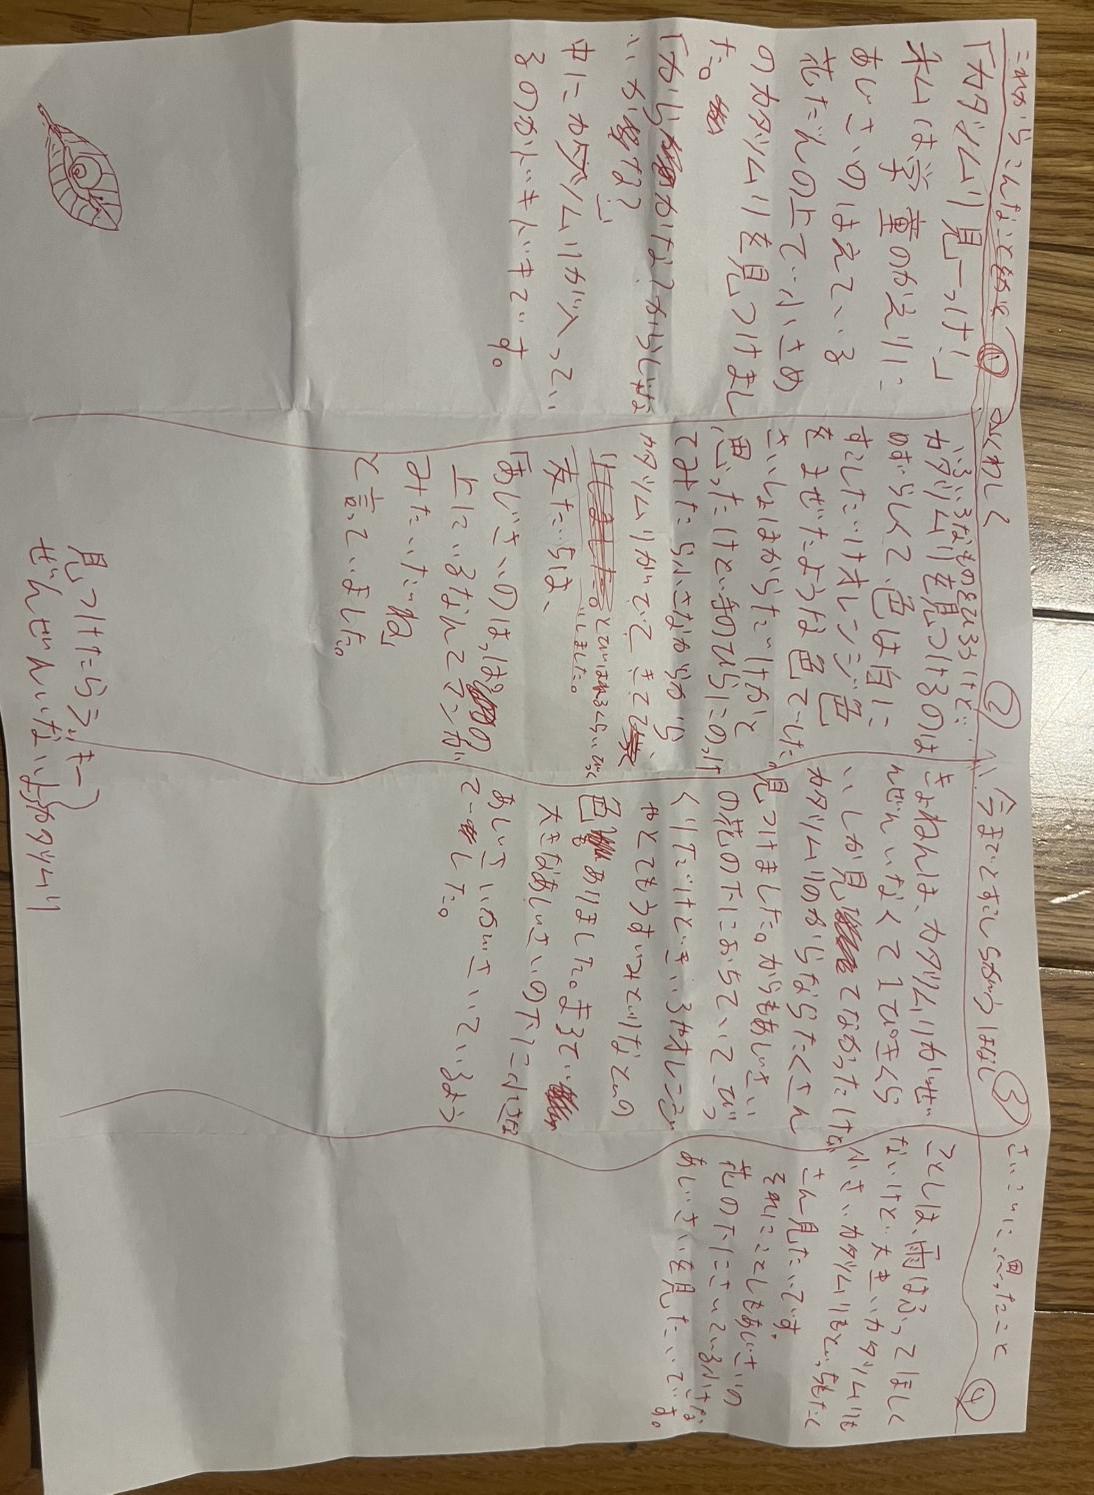 これからこんなことを
①
「カタツムリ見一っけ!」
私は学童のがえりに
あじさいのはえている
花だんの上で小さめ
のカタツムリを見つけまし
た。
「からかなからじゃな
いかな?」
中にカタツムリが入ってい
るのがドキドキです。
くわしく
②
いろいろなものをひろうけど、
カタツムリを見つけるのは
めずらしくて、色は白に
すこしだけオレンジ色
をまぜたような色でした。
さいしょはからだけかと
思ったけど、手のひらにのっけ
てみたら小さなからから
カタツムリがでてきて
といわれるくらいびっくり
しました。
友だちは、
「あじさいのはっぱの
上にいるなんてマンガ
みたいだね」
と言っていました。
今まですこしちがうはなし
③
きょねんは、カタツムリがぜ
んぜんいなくて1ぴきくら
いしか見てなかったけど
カタツムリのからならたくさん
見つけました。からもあじさい
の花の下におちていてびっ
くりだけどきいろやオレンジ
やとてもうすいみどりなどの
色もありました。まるで
大きなあじさいの下に小さな
あじさいがさいているよう
でした。
さいごに思ったこと
④
ことしは、雨はふってほしく
ないけど、大きいカタツムリも
小さいカタツムリもどっちもたく
さん見たいです。
それにことしもあじさいの
花の下にさいている小さな
あじさいを見たいです。
見つけたらラッキー
ぜんぜんいないよカタツムリ